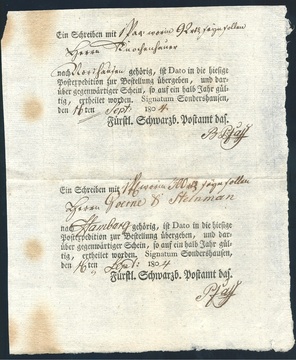 Ein Schreiben mit 1
Herrn
nach gehörig, ist Dato in die hiesige
Postexpedition zur Bestellung übergeben, und dar-
über gegenwärtiger Schein, so auf ein halb Jahr gül-
tig, ertheilet worden. Signatum Sondershausen,
den 16 ten Sept. 1804.
Fürstl. Schwarzb. Postamt das.
Ein Schreiben mit
Herrn & Steinman
nach Hamborg gehörig, ist Dato in die hiesige
Postexpedition zur Bestellung übergeben, und dar-
über gegenwärtiger Schein, so auf ein halb Jahr gül-
tig, ertheilet worden. Signatum Sondershausen,
den 16 ten Sept. 1804
Fürstl. Schwarzb. Postamt das.